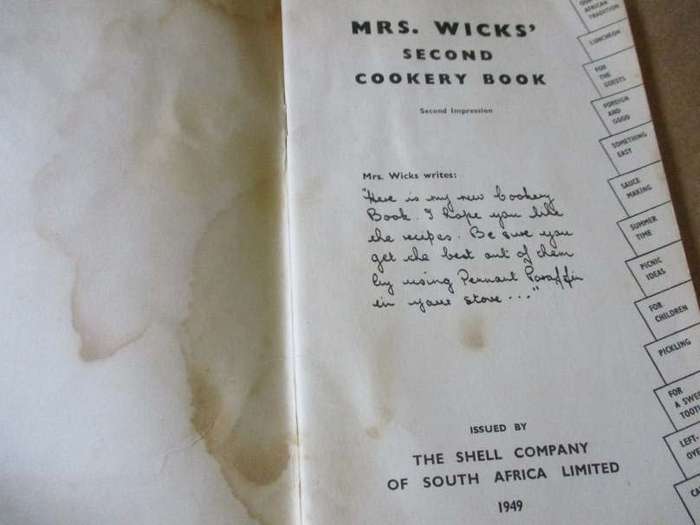 MRS. WICKS'
SECOND
COOKERY BOOK
Second Impression
Mrs. Wicks writes:
"Here is my new Cookery
Book. I hope you like
the recipes. Be sure you
get the best out of them
by using Pennant Paraffin
in your stove..."
ISSUED BY
THE SHELL COMPANY
OF SOUTH AFRICA LIMITED
1949
AFRICAN
TRADITION
LUNCHEON
FOR
THE
GUESTS
FOREIGN
AND
GOOD
SOMETHING
EASY
SAUCE
MAKING
SUMMER
TIME
PICNIC
IDEAS
FOR
CHILDREN
PICKLING
FOR
A SWEE
TOOTH
LEFT-
OVE